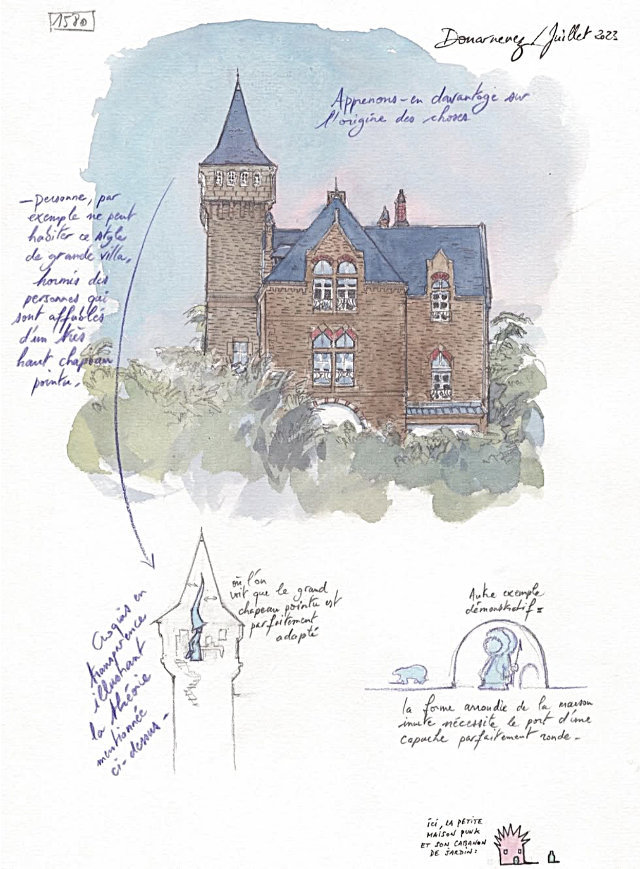 1580
Douarnenez / Juillet 2023
Apprenons-en davantage sur
l'origine des choses
- personne, par
exemple ne peut
habiter ce style
de grande villa,
hormis des
personnes qui
sont affublés
d'un très
haut chapeau
pointu.
Croquis en
transparence
illustrant
la théorie
mentionnée
ci-dessus -
où l'on
voit que le grand
chapeau pointu est
parfaitement
adapté
Autre exemple
démonstratif :
la forme arrondie de la maison
inuite nécessite le port d'une
capuche parfaitement ronde -
ici, LA PETITE
MAISON PUNK
ET SON CABANON
DE JARDIN :